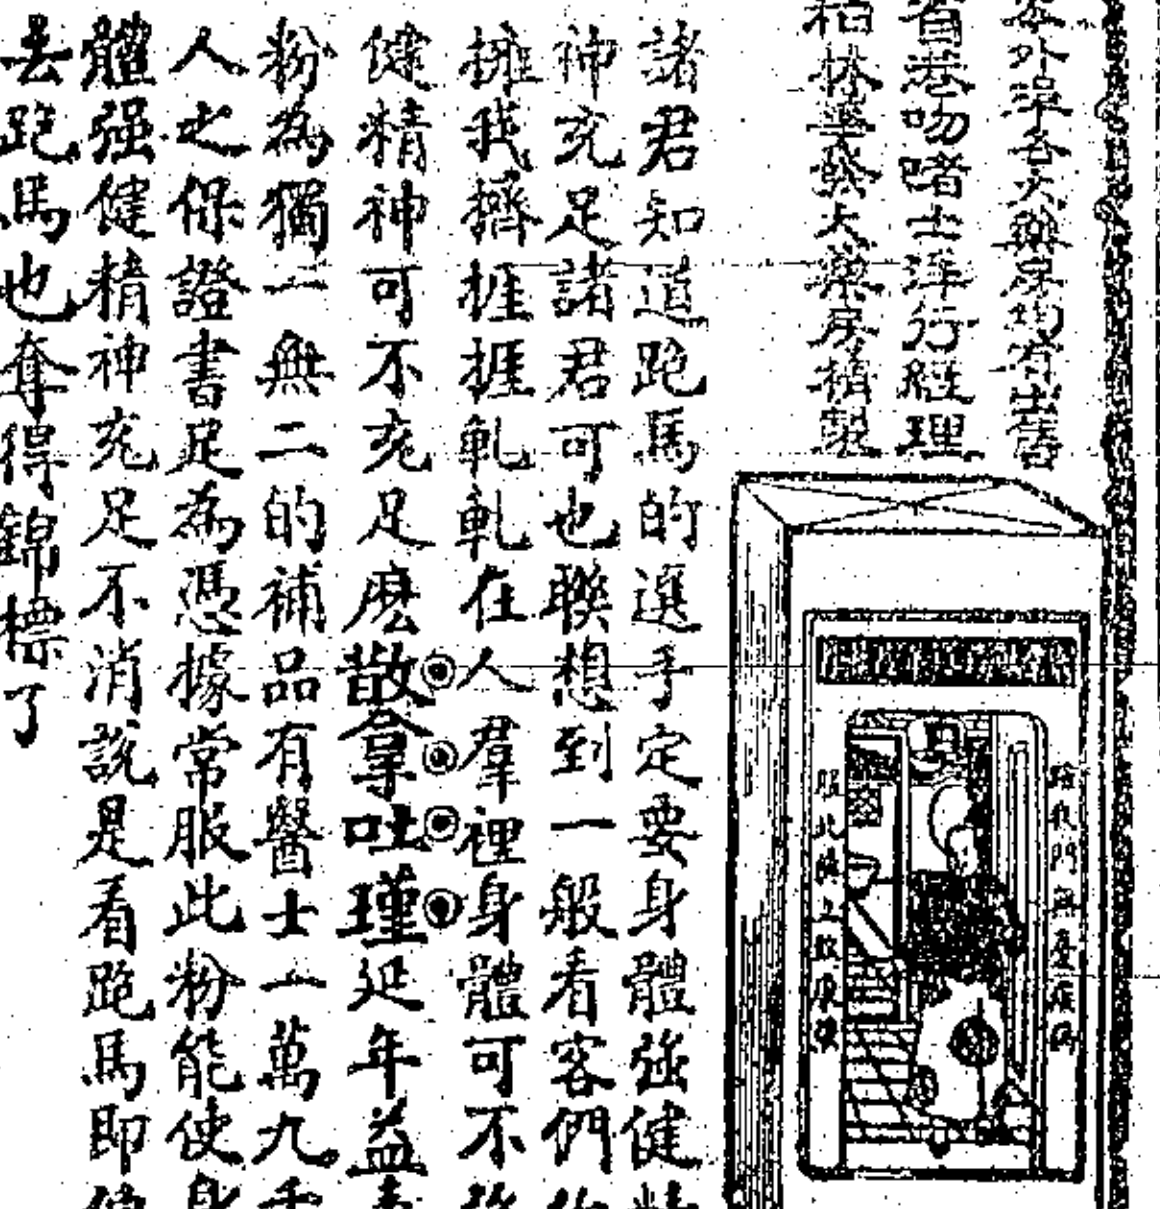 本外埠各大藥房均有出售
省港吻啫士洋行經理
柏林華發大藥房精製
諸君知道跑馬的選手定要身體強健精
神充足諸君可也聯想到一般看客們你
擁我擠捱捱軋軋在人羣裡身體可不強
健精神可不充足麽散拿吐瑾延年益壽
粉為獨一無二的補品有醫士一萬九千
人之保證書足為憑據常服此粉能使身
體强健精神充足不消說是看跑馬即使
去跑馬也奪得錦標了